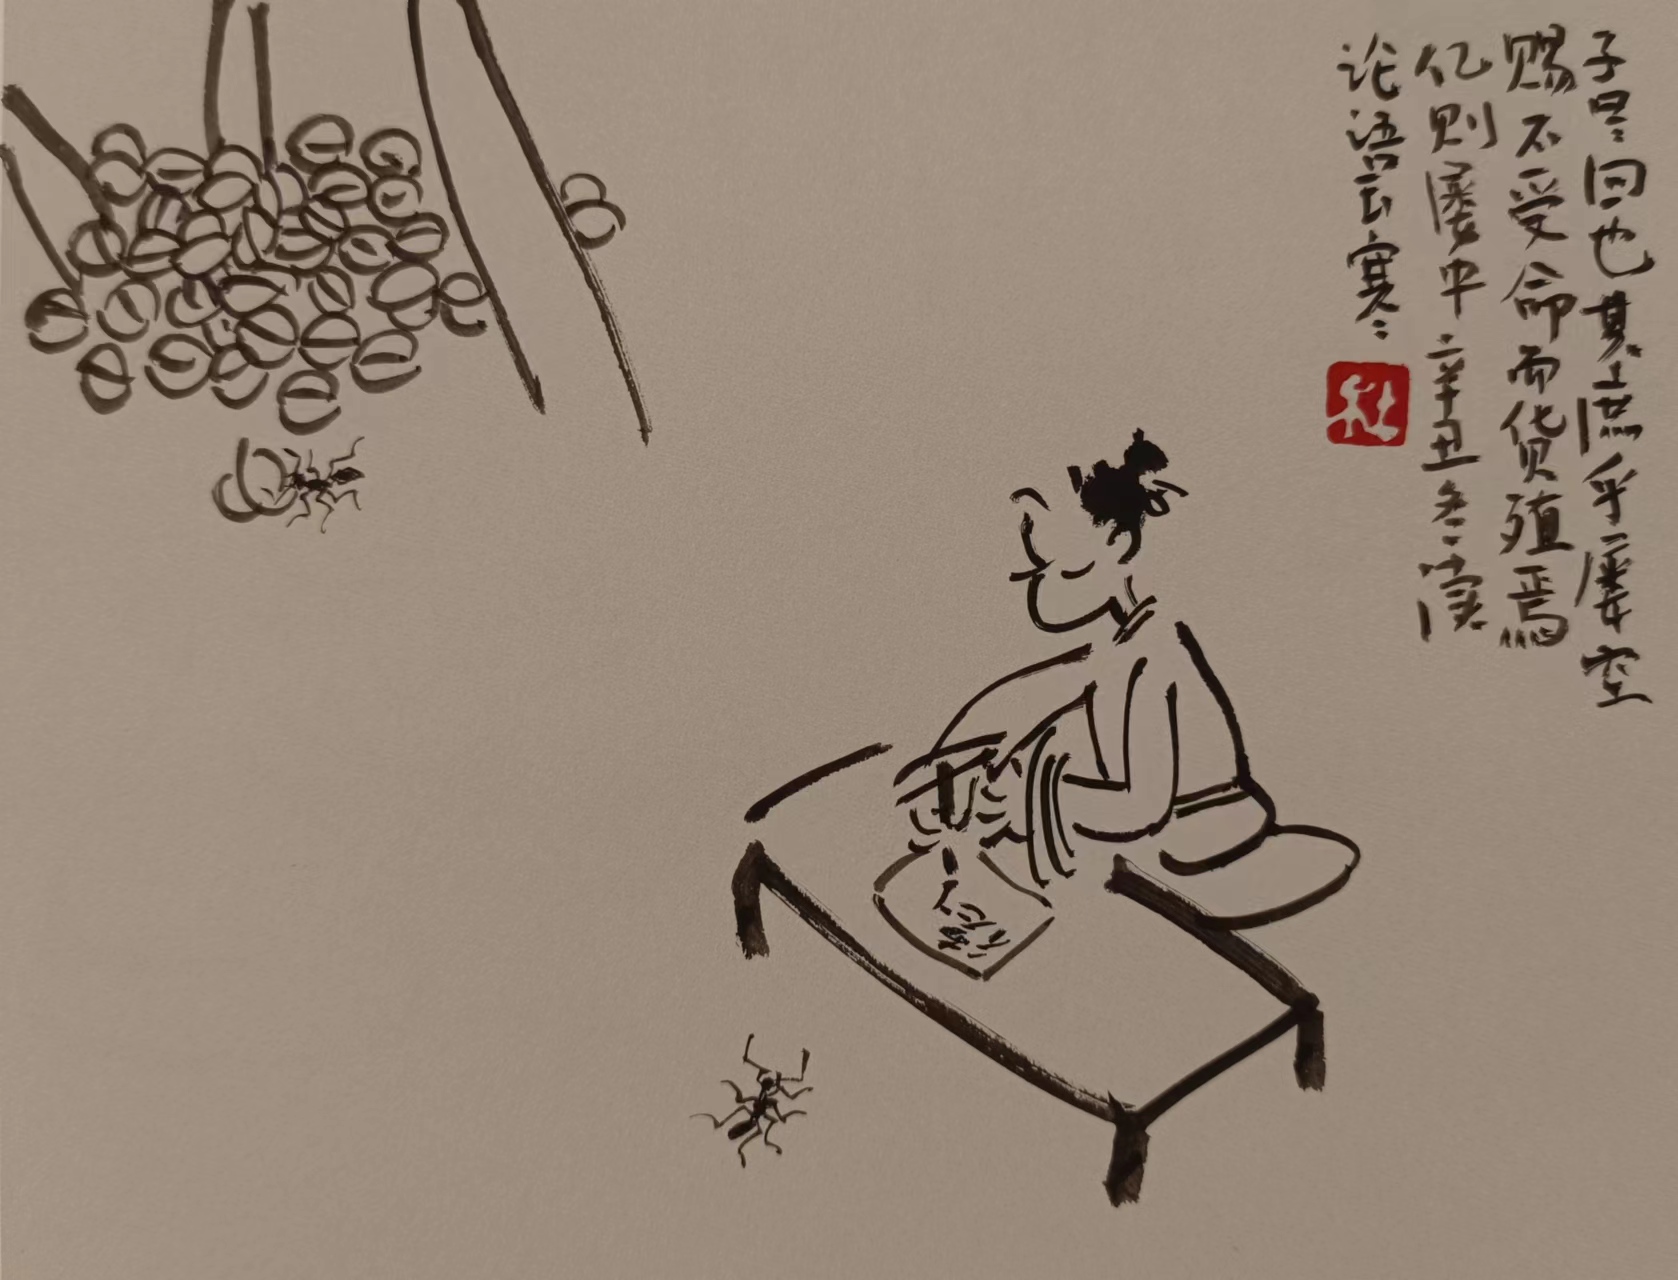 子曰回也其庶乎屡空
赐不受命而货殖焉
亿则屡中辛丑冬读
论语云寒